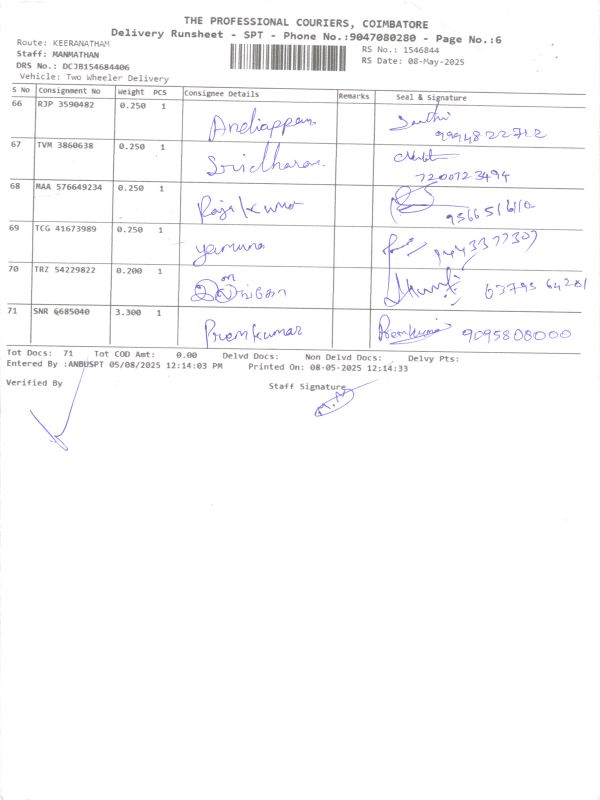 THE PROFESSIONAL COURIERS, COIMBATORE
Delivery Runsheet - SPT - Phone No.:9047080280 - Page No.:6
Route: KEERANATHAM
Staff: MANMATHAN
DRS No.: DCJB154684406
Vehicle: Two Wheeler Delivery
RS No.: 1546844
RS Date: 08-May-2025
S No Consignment No Weight PCS Consignee Details Remarks Seal & Signature
66 RJP 3590482 0.250 1 Andiappan 9994822712
67 TVM 3860638 0.250 1 Sridharan 7200723494
68 MAA 576649234 0.250 1 Rajkumar
69 TCG 41673989 0.250 1 yamuna
70 TRZ 54229822 0.200 1
71 SNR 6685040 3.300 1 Premkumar Premkumar 9095808000
Tot Docs: 71 Tot COD Amt: 0.00 Delvd Docs: Non Delvd Docs: Delvy Pts:
Entered By :ANBUSPT 05/08/2025 12:14:03 PM Printed On: 08-05-2025 12:14:33
Verified By Staff Signature